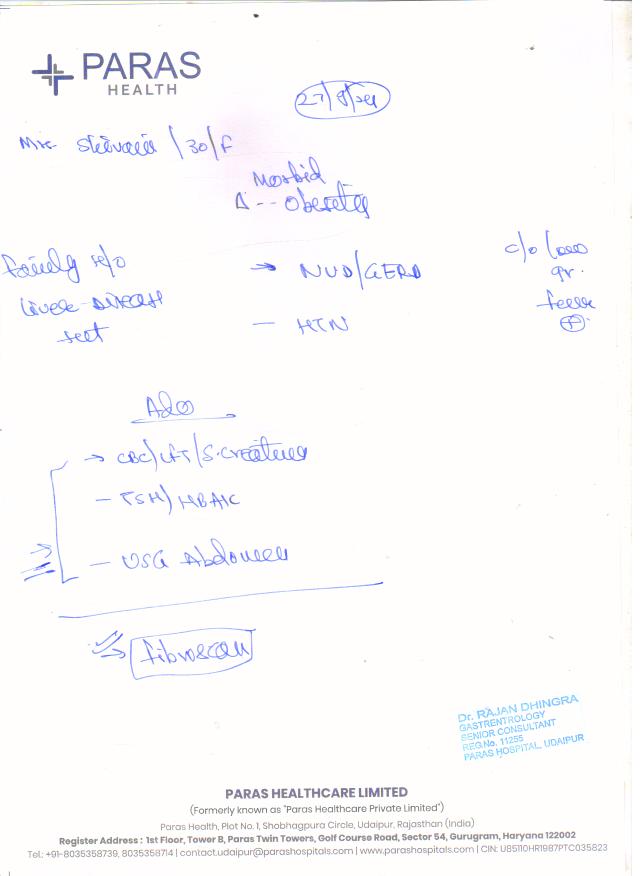 PARAS
HEALTH
27/8/24
Mrs. /30/F
Morbid
Δ -- Obesity
Family H/o
Liver Disease
→ NUD/GERD
- HTN
c/o
gr.
⊕
Adv
→ CBC/LFT/S.Creatinine
- TSH/HBA1C
- USG Abdomen
→ Fibroscan
Dr. RAJAN DHINGRA
GASTRENTROLOGY
SENIOR CONSULTANT
REG.No. 11255
PARAS HOSPITAL, UDAIPUR
PARAS HEALTHCARE LIMITED
(Formerly known as "Paras Healthcare Private Limited")
Paras Health, Plot No. 1, Shobhagpura Circle, Udaipur, Rajasthan (India)
Register Address : 1st Floor, Tower B, Paras Twin Towers, Golf Course Road, Sector 54, Gurugram, Haryana 122002
Tel.: +91-8035358739, 8035358714 | contact.udaipur@parashospitals.com | www.parashospitals.com | CIN: U85110HR1987PTC035823